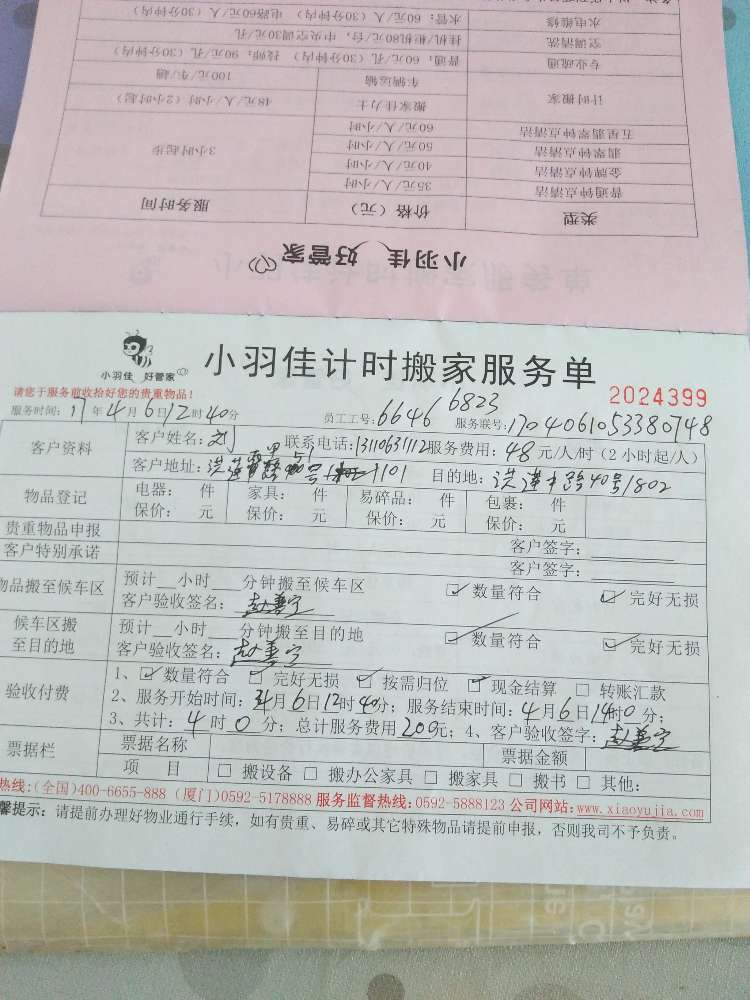 水电维修 水管：60元/人（30分钟内） 电路60元/人（30分钟内）
空调清洗 挂机/柜机80元/台，中央空调30元/孔
专业疏通 普通：60元/孔（30分钟内） 技师：90元/孔（30分钟内）
车辆运输 100元/车/趟
计时搬家 搬家佳力士 48元/人/小时（2小时起）
五星翡翠钟点清洁 60元/人/小时
翡翠钟点清洁 50元/人/小时 3小时起步
金牌钟点清洁 40元/人/小时
普通钟点清洁 35元/人/小时
类型 价格（元） 服务时间
小羽佳 好管家
小羽佳 好管家
小羽佳计时搬家服务单
2024399
请您于服务前收拾好您的贵重物品！
服务时间：17年4月6日12时40分 员工工号：6646 6823 服务联号：1704061053380748
客户资料 客户姓名：刘 联系电话：13110631112 服务费用：48元/人/时（2小时起/人）
客户地址：洪莲 1101 目的地：洪莲中路40号1802
物品登记 电器： 件 家具： 件 易碎品： 件 包裹： 件
保价： 元 保价： 元 保价： 元 保价： 元
贵重物品申报 客户签字：
客户特别承诺 客户签字：
物品搬至候车区 预计__小时___分钟搬至候车区 ☑数量符合 ☑完好无损
客户验收签名：赵善宝
候车区搬至目的地 预计__小时___分钟搬至目的地 ☑数量符合 ☑完好无损
客户验收签名：赵善宝
验收付费 1、☑数量符合 ☑完好无损 ☑按需归位 ☑现金结算 □转账汇款
2、服务开始时间：4月6日12时40分；服务结束时间：4月6日14时0分；
3、共计：4时0分；总计服务费用200元；4、客户验收签字：赵善宝
票据栏 票据名称 票据金额
项 目 □搬设备 □搬办公家具 □搬家具 □搬书 □其他：
热线：(全国)400-6655-888 (厦门)0592-5178888 服务监督热线：0592-5888123 公司网站：www.xiaoyujia.com
馨提示：请提前办理好物业通行手续，如有贵重、易碎或其它特殊物品请提前申报，否则我司不予负责。